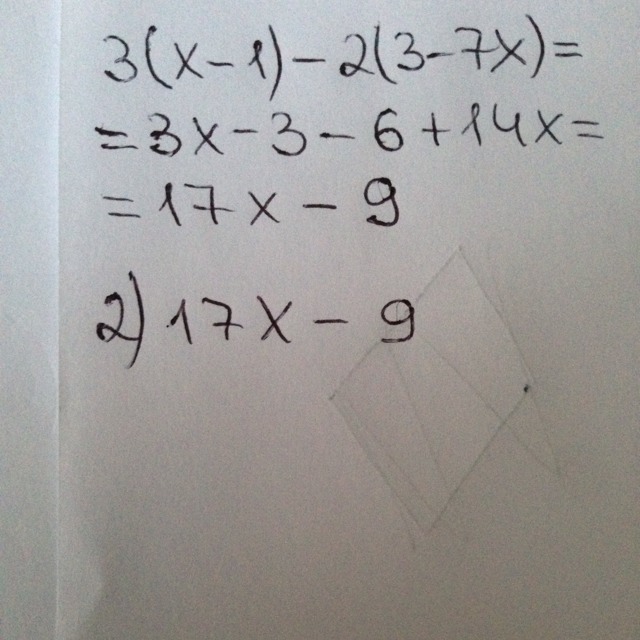 3(x-1)-2(3-7x)=
=3x-3-6+14x=
=17x-9
2) 17x-9